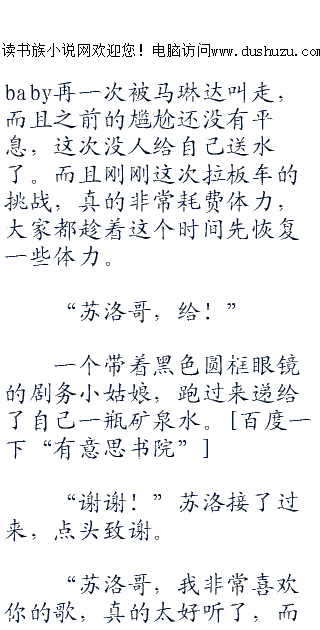 读书族小说网欢迎您！电脑访问www.dushuzu.com
baby再一次被马琳达叫走，
而且之前的尴尬还没有平
息，这次没人给自己送水
了。而且刚刚这次拉板车的
挑战，真的非常耗费体力，
大家都趁着这个时间先恢复
一些体力。
“苏洛哥，给！”
一个带着黑色圆框眼镜
的剧务小姑娘，跑过来递给
了自己一瓶矿泉水。[百度一
下“有意思书院”]
“谢谢！”苏洛接了过
来，点头致谢。
“苏洛哥，我非常喜欢
你的歌，真的太好听了，而